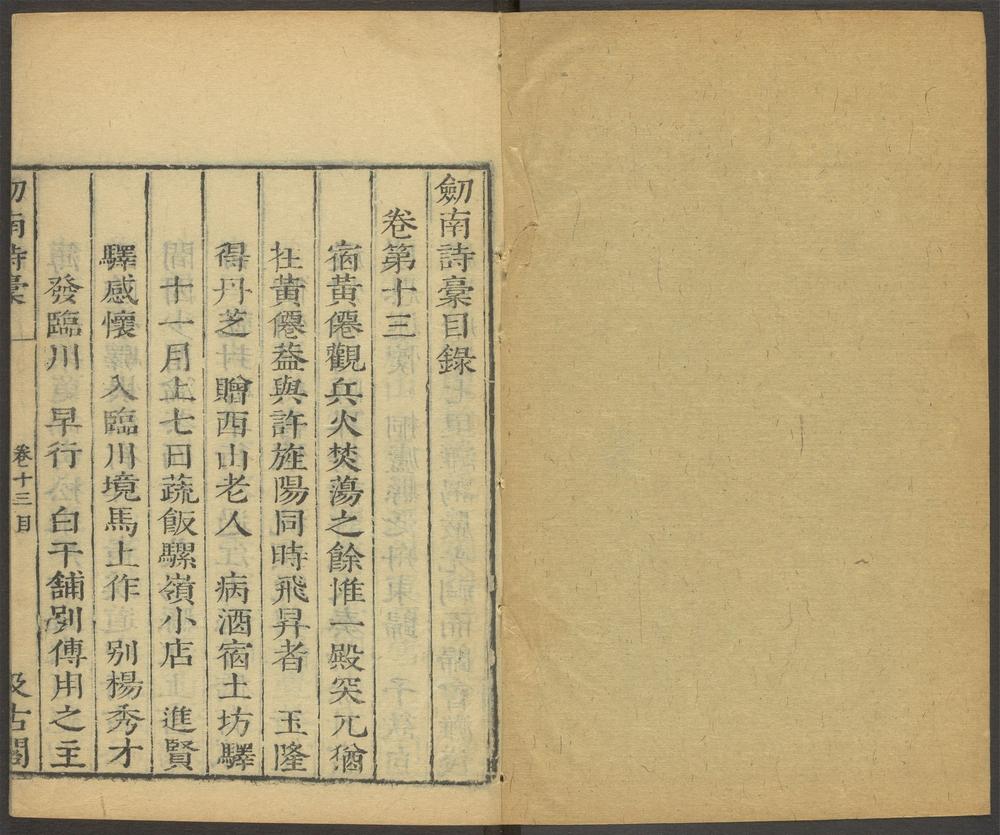 劒南詩稾目錄
卷第十三
宿黃僊觀兵火焚蕩之餘惟一殿突兀猶
在黃僊葢與許旌陽同時飛昇者　玉隆
得丹芝　贈西山老人　病酒宿土坊驛
十一月上七日蔬飯騾嶺小店　進賢
驛感懷　入臨川境馬上作　別楊秀才
發臨川　早行　白干舖別傅用之主
劒南詩稾　卷十三目　汲古閣